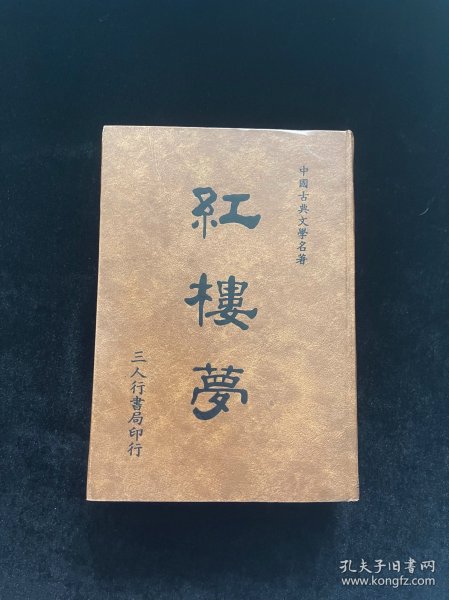 中國古典文學名著
紅樓夢
三人行書局印行
孔夫子旧书网
www.kongfz.com